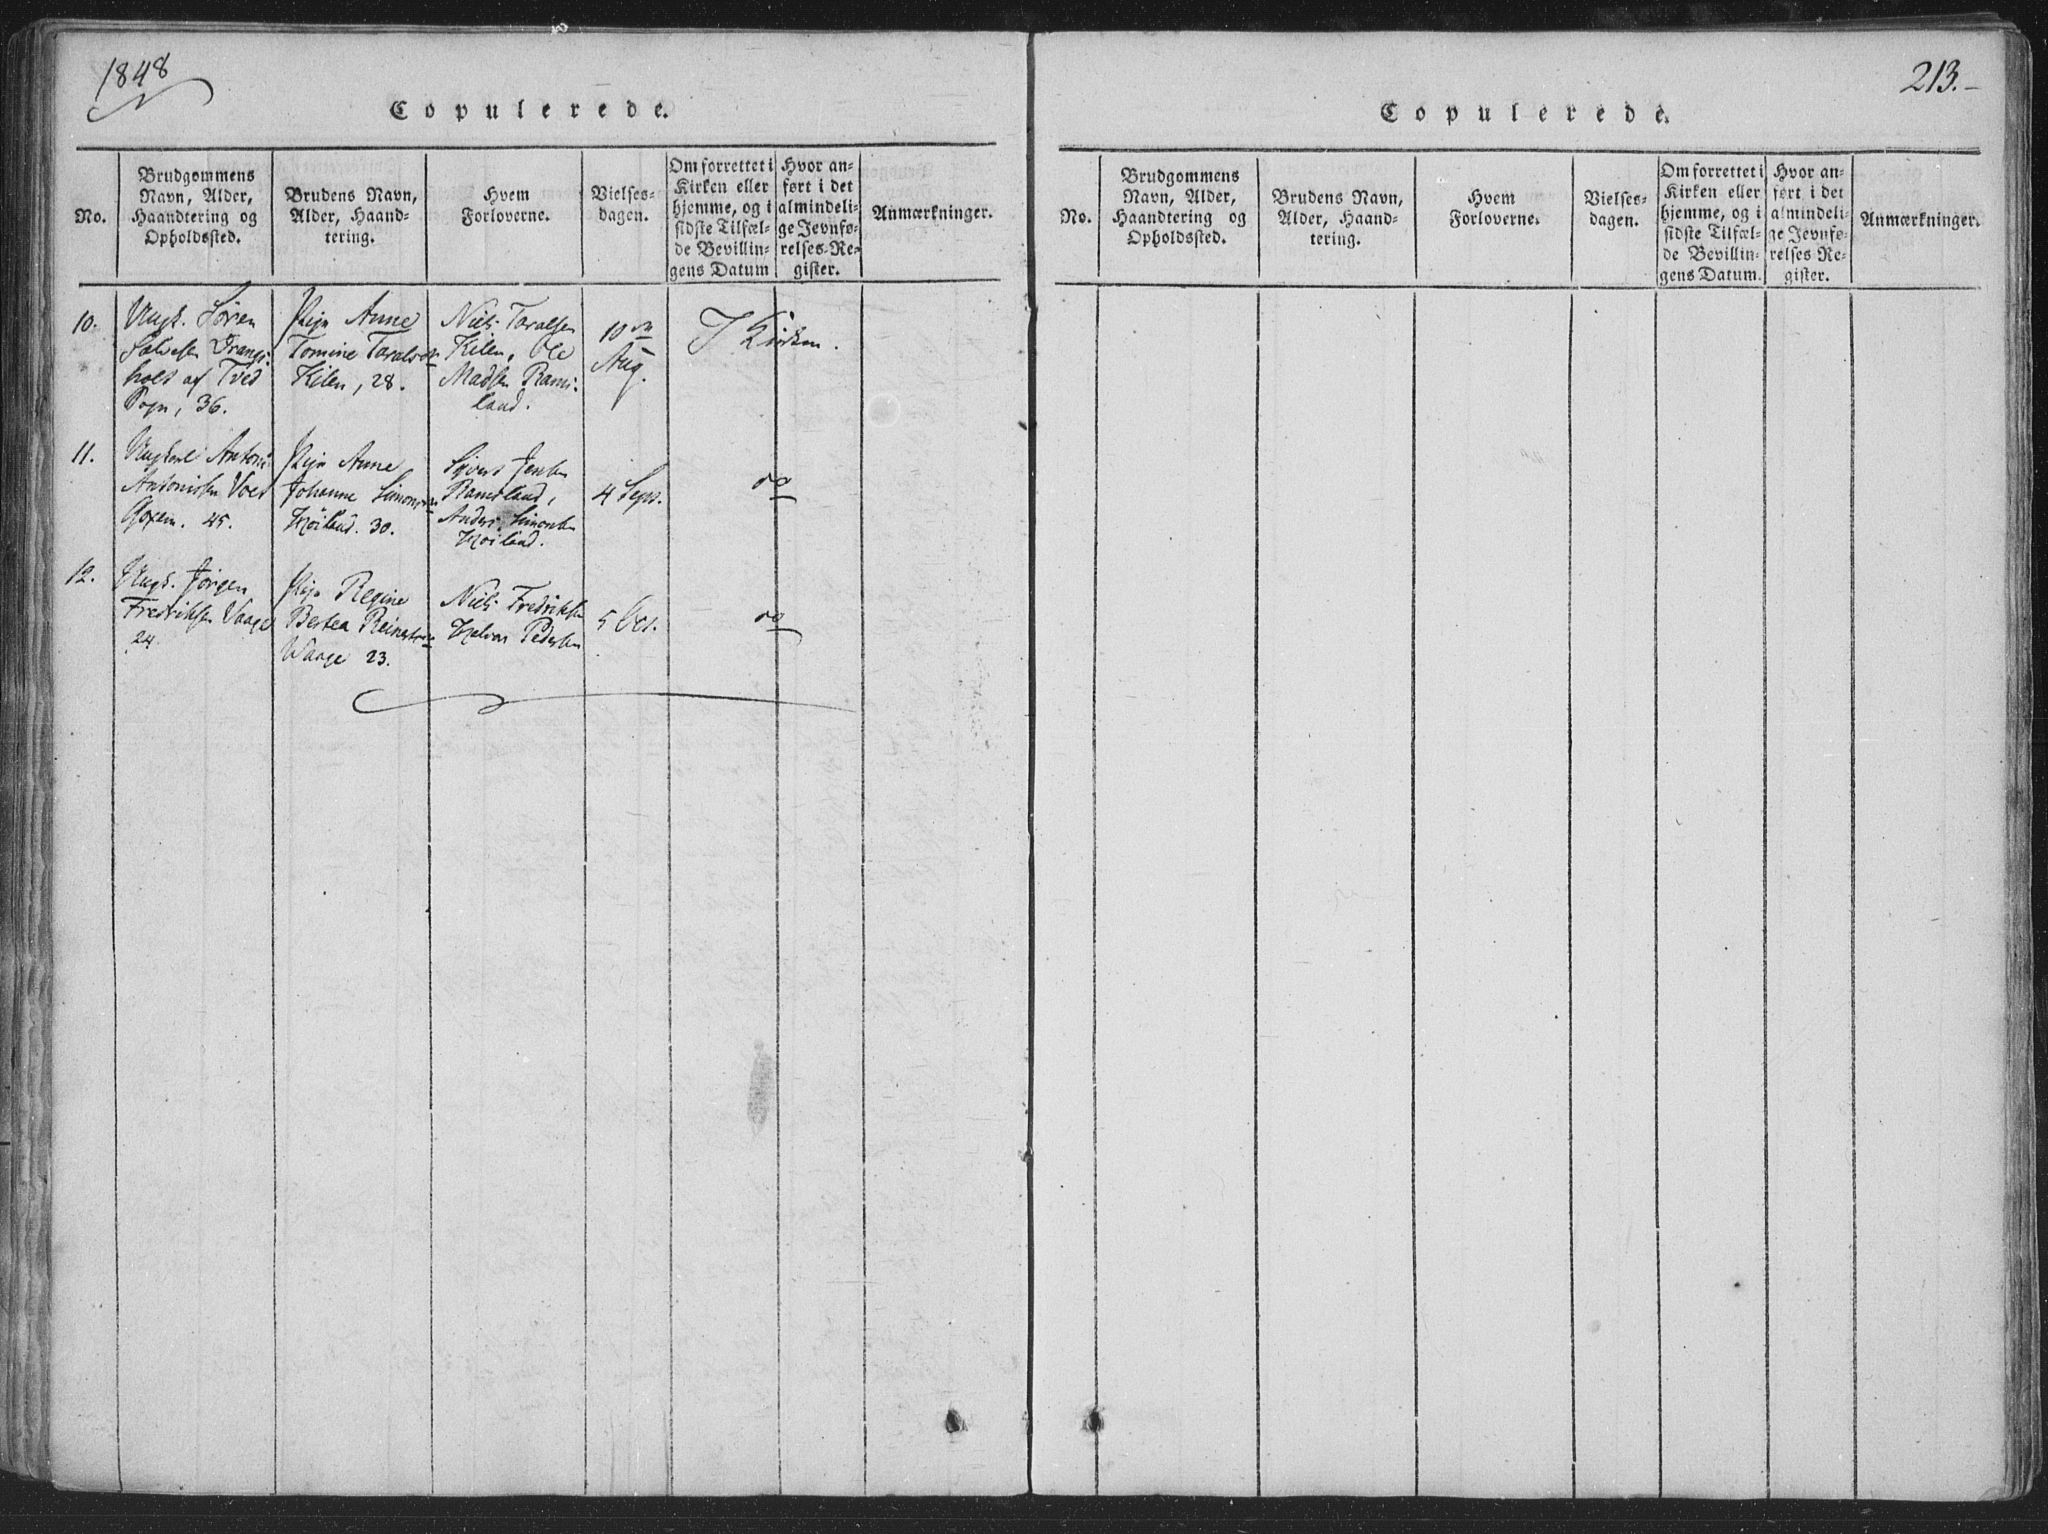 1848
Copulerede.
No.
Brudgommens
Navn, Alder,
Haandtering og
Opholdssted.
Brudens Navn,
Alder, Haand-
tering.
Hvem
Forloverne.
Vielses-
dagen.
Om forrettet i
Kirken eller
hjemme, og i
sidste Tilfæl-
de Bevillin-
gens Datum
Hvor an-
ført i det
almindeli-
ge Jevnfø-
relses-Re-
gister.
Anmærkninger.
10.
Ungk. Sören
Salvesen Drangs
holt af Tved
Sogn, 36.
Pige Anne
Tomine Taralsen
Kilen, 28.
Niels Taralsen
Kilen, Ole
Madsen Rams
land.
10
Aug.
I Kirken.
11.
Ungkarl Antoni
Antonisen Voes
45.
Pige Anne
Johanne Simonsen
Höiland. 30.
Sivert Jensen
Ramsland,
Anders Simonsen
Höiland.
4 Sept.
do
12.
Ungk. Jörgen
Fredriksen Vaage
24.
Pige Regine
Bertea
Waage 23.
Niels Fredriksen
Pedersen
5 Oct.
do
213.-
Copulerede.
No.
Brudgommens
Navn, Alder,
Haandtering og
Opholdssted.
Brudens Navn,
Alder, Haand-
tering.
Hvem
Forloverne.
Vielses-
dagen.
Om forrettet i
Kirken eller
hjemme, og i
sidste Tilfæl-
de Bevillin-
gens Datum.
Hvor an-
ført i det
almindeli-
ge Jevnfø-
relses-Re-
gister.
Anmærkninger.